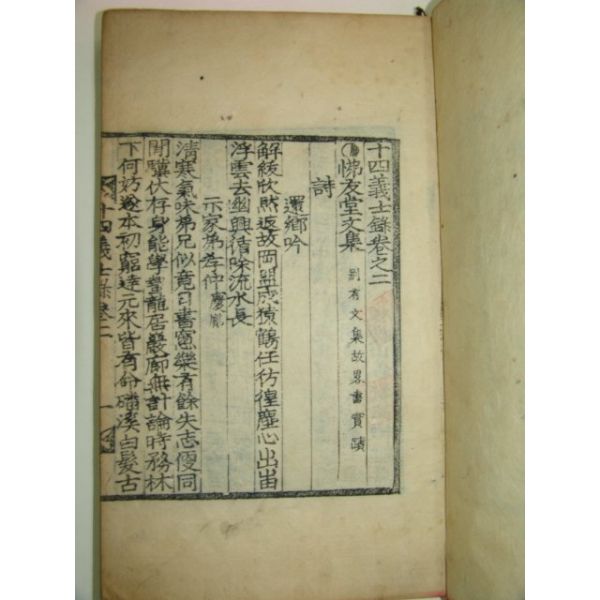 十四義士錄卷之二
怫友堂文集 別有文集故畧書實蹟
詩
還鄉吟
解綬欣然返故岡盟成猿鶴任彷徨塵心出岫
浮雲去幽興循除流水長
示家弟孝仲慶胤
清寒氣味弟兄似竟日書窓樂有餘失志優同
閑驥伏存身能學蟄龍居嚴廊無計論時務林
下何妨遂本初窮達元來皆有命磻溪白髮古
十四義士錄卷二 一